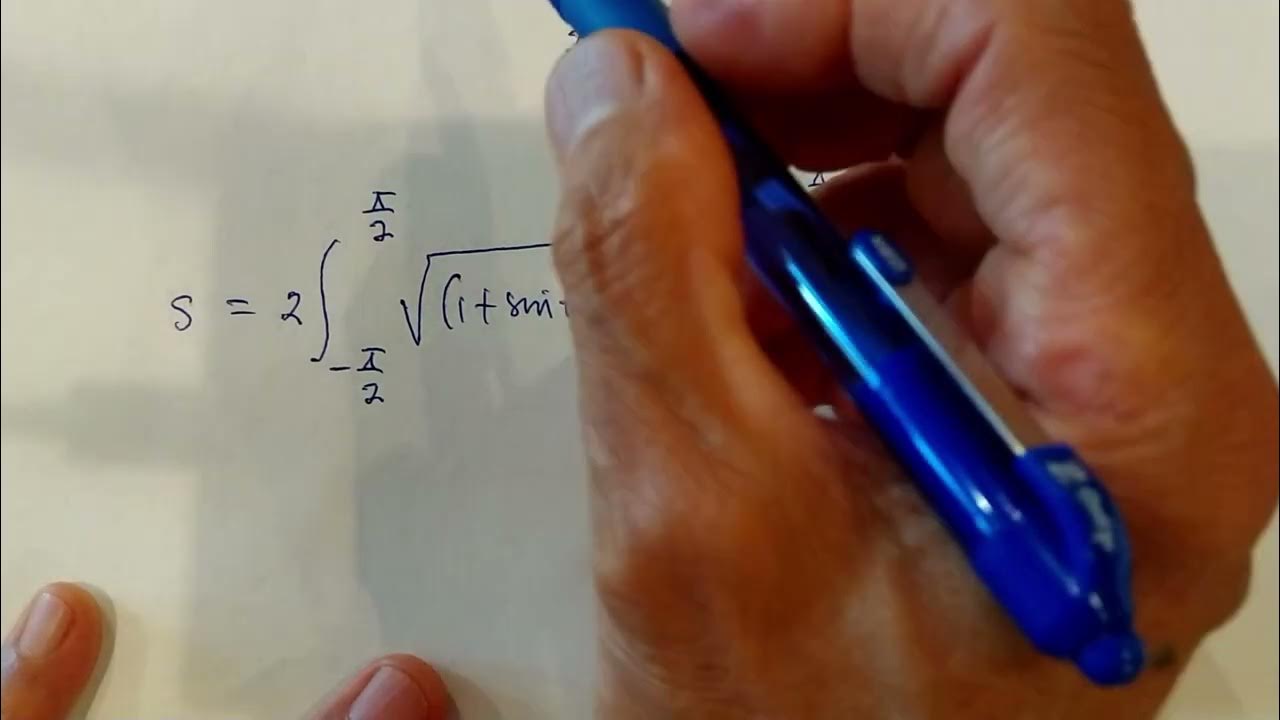 s = 2 ∫_{-π/2}^{π/2} √(1+sin